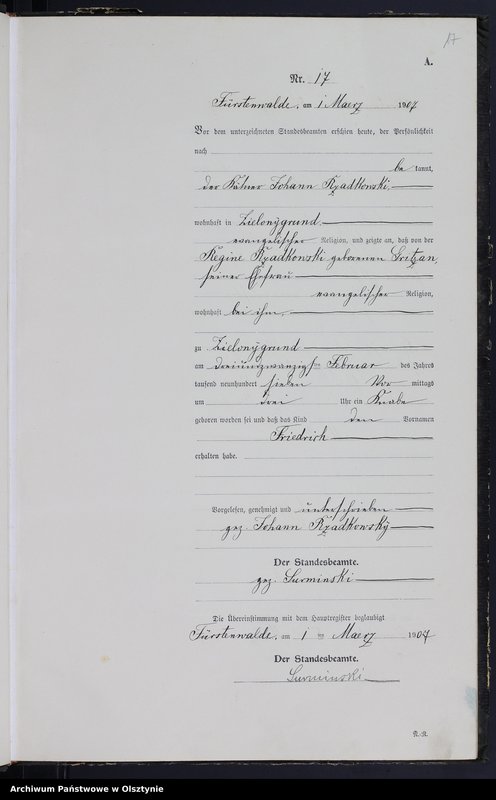 17
A.
Nr. 17
Fürstenwalde, am 1 Maerz 1907
Vor dem unterzeichneten Standesbeamten erschien heute, der Persönlichkeit
nach
be kannt,
der Kätner Johann Rzadkowski,
wohnhaft in Zielonygrund,
evangelischer Religion, und zeigte an, daß von der
Regine Rzadkowski geborenen
seiner Ehefrau
evangelischer Religion,
wohnhaft bei ihm,
zu Zielonygrund
am dreiundzwanzigsten Februar des Jahres
tausend neunhundert sieben Vor mittags
um drei Uhr ein Knabe
geboren worden sei und daß das Kind den Vornamen
Friedrich
erhalten habe.
Vorgelesen, genehmigt und unterschrieben
gez. Johann Rzadkowsky
Der Standesbeamte.
gez. Surminski
Die Übereinstimmung mit dem Hauptregister beglaubigt
Fürstenwalde, am 1 ten Maerz 1907
Der Standesbeamte.
Surminski
Archiwum Państwowe w Olsztynie